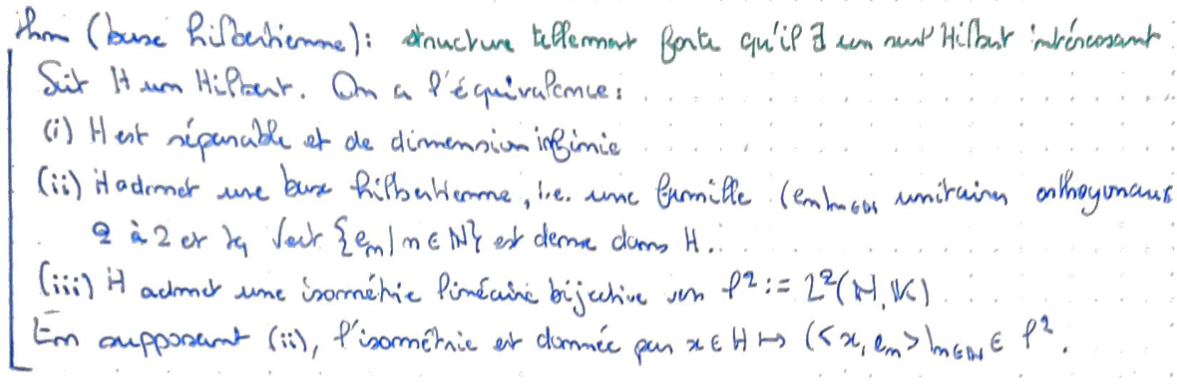 thm (base hilbertienne): structure tellement forte qu'il ∃ un seul Hilbert intéressant.
Soit H un Hilbert. On a l'équivalence:
(i) H est séparable et de dimension infinie
(ii) H admet une base hilbertienne, i.e. une famille (en)n∈N unitaires orthogonaux
2 à 2 et tq Vect {en | n ∈ N} est dense dans H.
(iii) H admet une isométrie linéaire bijective vers ℓ² := L²(N, K)
En supposant (ii), l'isométrie est donnée par x ∈ H ↦ (<x, en>)n∈N ∈ ℓ².